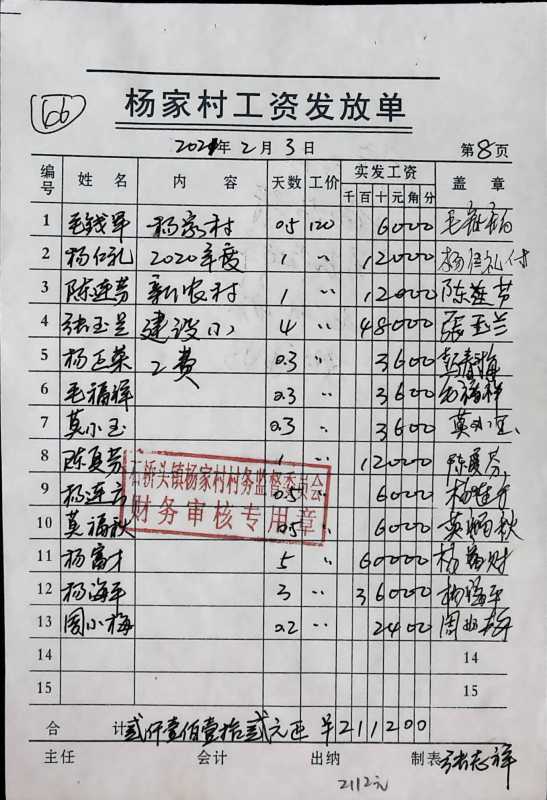 66
杨家村工资发放单
2021年2月3日 第8页
编号 姓名 内容 天数 工价 实发工资 盖章
千百十元角分
1 毛钱军 杨家村 0.5 120 6000
2 杨仁礼 2020年度 1 〃 12000 杨仁礼付
3 陈连芳 新农村 1 〃 12000 陈莲芳
4 张玉兰 建设小 4 〃 48000 張玉兰
5 杨正荣 工费 0.3 〃 3600
6 毛福祥 0.3 〃 3600 毛福祥
7 莫小玉 0.3 〃 3600 莫小玉
8 陈夏芬 1 〃 12000 陈夏芬
石桥头镇杨家村村务监督委员会
9 杨连方 0.5 〃 6000
财务审核专用章
10 莫福秋 0.5 〃 6000 莫福秋
11 杨富才 5 〃 60000 杨富财
12 杨海平 3 〃 36000 杨海平
13 周小梅 0.2 〃 2400 周小梅
14 14
15 15
合计 贰仟壹佰壹拾贰元正 ¥211200
主任 会计 出纳 制表 张志祥
2112元